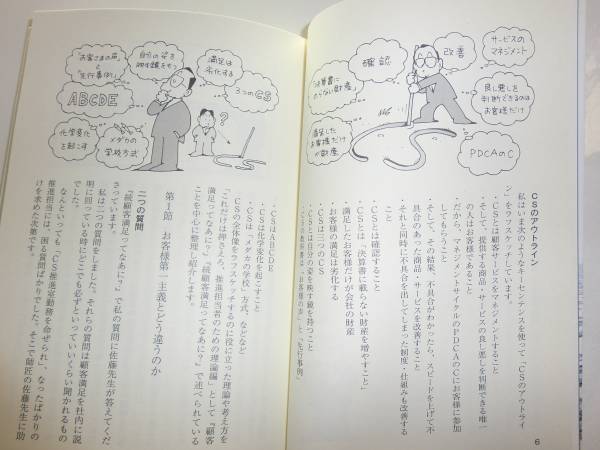 サービスの
マネジメント
改善
確認
決算書に
のらない財産
良し悪しを
判断できるのは
お客様だけ
満足した
お客様だけ
が財産
PDCAのC
CSのアウトライン
私はいま次のようなキーセンテンスを使って「CSのアウトライ
ン」をラフスケッチしています。
・CSとはサービスをマネジメントすること
・そして、提供する商品・サービスの良し悪しを判断できる唯一
の人はお客様であること
・だから、マネジメントサイクルのPDCAのCにお客様に参加
してもらうこと
・そして、その結果、不具合がわかったら、スピードを上げて不
具合のあった商品・サービスを改善すること
・それと同時に不具合を出してしまった制度・仕組みも改善する
こと
・CSとは確認すること
・CSとは、決算書に載らない財産を増やすこと
満足したお客様だけが会社の財産
・お客様の満足は劣化する
・CSは三つのCS
・CSとは自分の姿を映す鏡を持つこと
・CSの教科書は「お客様の声」と「先行事例」
6
満足は
劣化する
自分の姿を
映す鏡をもつ
「お客さまの声」
と
「先行事例」
3つのCS
ABCDE
化学変化
を起こす
メダカの
学校方式
?
・CSはABCDE
・CSは化学変化を起こすこと
・CSは「メダカの学校」方式、などなど
CSの全体像をラフスケッチするのに役に立った理論や考え方を
「これだけは押さえろ 推進担当者のための理論編」として『顧客
満足ってなあに?』『続顧客満足ってなあに?』で述べられている
ことを中心に整理し紹介します。
第1節 お客様第一主義とどう違うのか
二つの質問
『続顧客満足ってなあに?』で私の質問に佐藤先生が答えてくだ
さっています。
私は二つの質問をしました。それらの質問は顧客満足を社内に説
明に回っている時にどこでも必ずといっていいくらい聞かれるもの
でした。
なんといっても、「CS推進室勤務を命ぜられ」、なったばかりの
推進担当には、困る質問ばかりでした。そこで師匠の佐藤先生に助
けを求めた次第です。